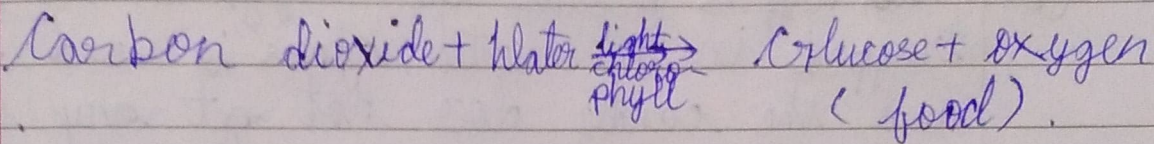 Carbon dioxide + Water light chloro- phyll → Glucose + oxygen
(food).